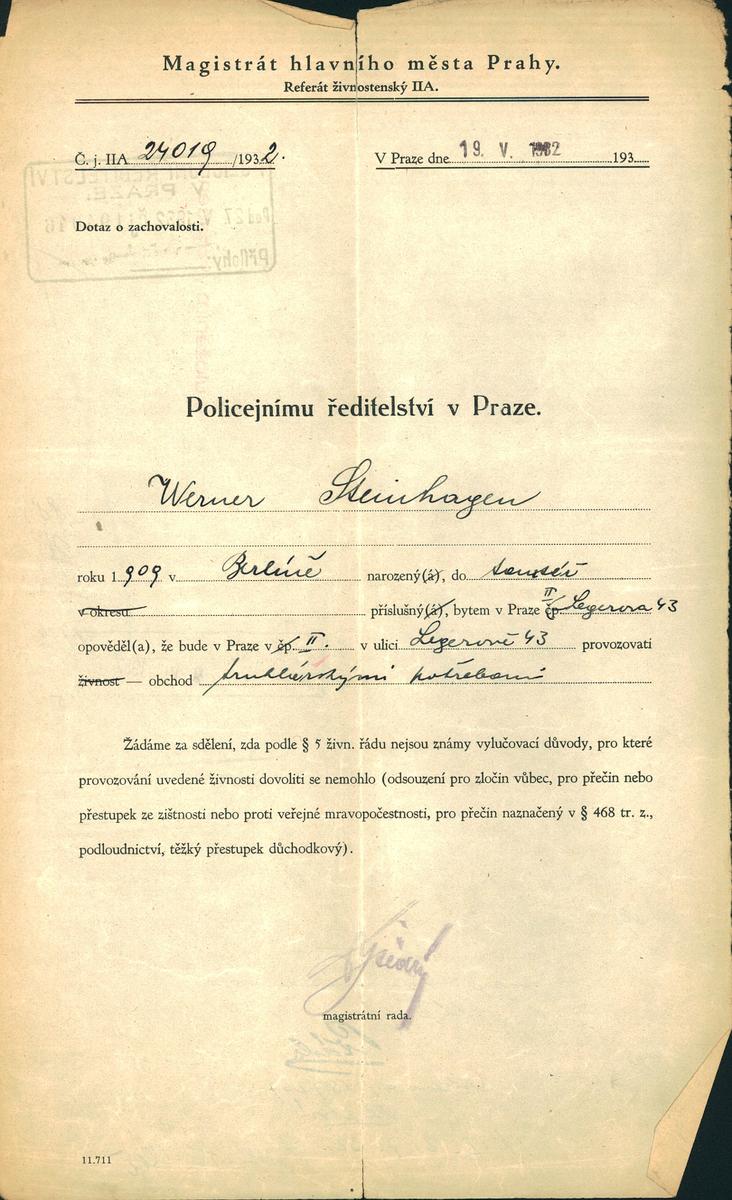 Magistrát hlavního města Prahy.
Referát živnostenský IIA.
Č. j. IIA 24019 /1932.
V Praze dne 19. V. 1932 193
Dotaz o zachovalosti.
Policejnímu ředitelství v Praze.
Werner Steinhagen
roku 1909 v Berlíně narozený(á), do tamtéž
v okresu příslušný(á), bytem v Praze čp. II Legerova 43
opověděl(a), že bude v Praze v čp. II. v ulici Legerově 43 provozovati
živnost — obchod truhlářskými potřebami
Žádáme za sdělení, zda podle § 5 živn. řádu nejsou známy vylučovací důvody, pro které
provozování uvedené živnosti dovoliti se nemohlo (odsouzení pro zločin vůbec, pro přečin nebo
přestupek ze zištnosti nebo proti veřejné mravopočestnosti, pro přečin naznačený v § 468 tr. z.,
podloudnictví, těžký přestupek důchodkový).
magistrátní rada.
11.711